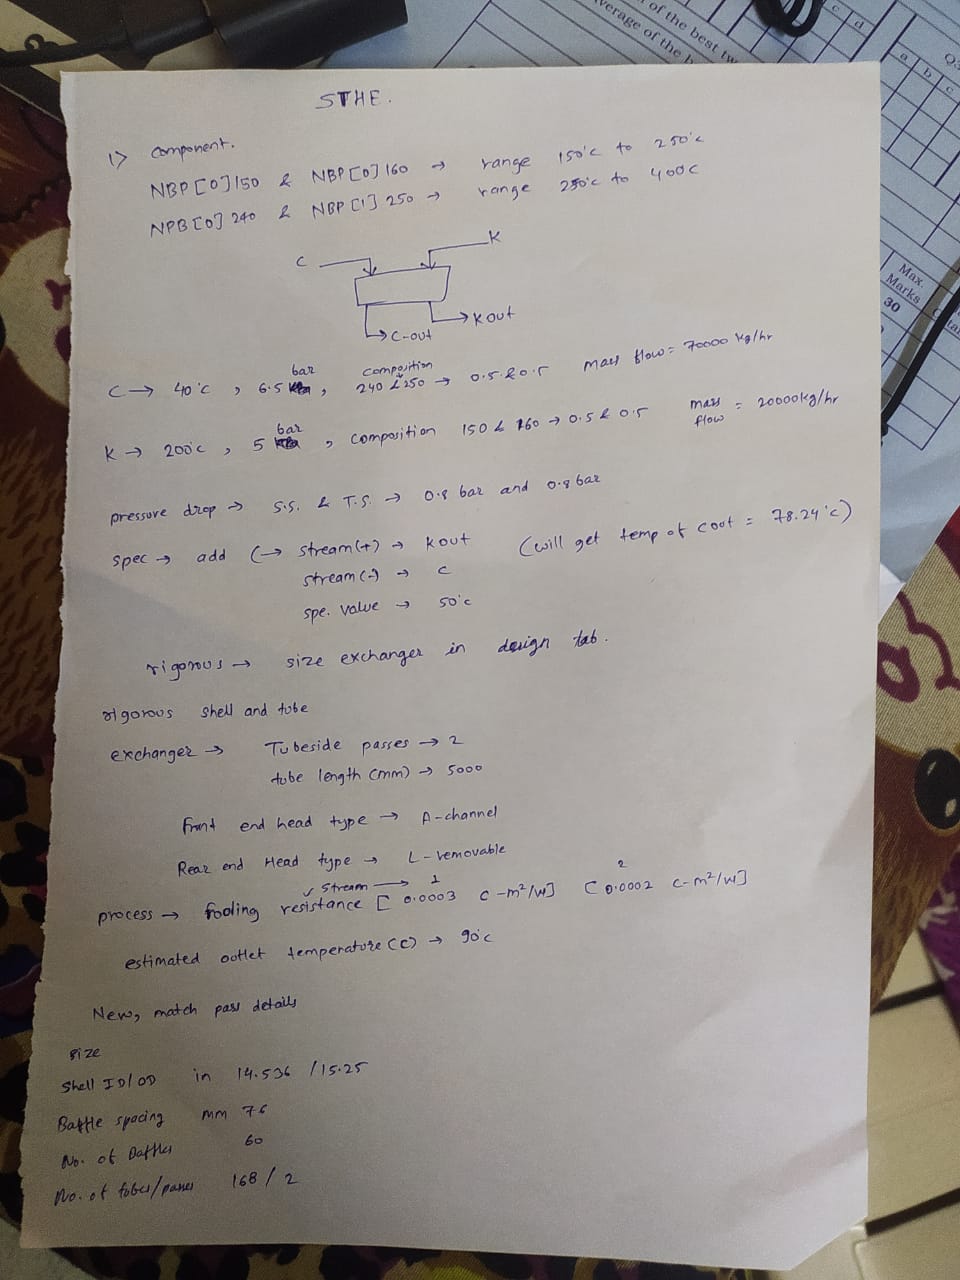 verage of the
of the best tw
c d
a b c
Q3
Max.
Marks
30
STHE.
1> Component.
NBP [0] 150 & NBP [0] 160 → range 150°c to 250°c
NPB [0] 240 & NBP [1] 250 → range 250°c to 400c
C K
K out
C-out
C → 40°c , 6.5 bar , composition 240 & 250 → 0.5 & 0.5 mass flow = 70000 kg/hr
K → 200°c , 5 bar , composition 150 & 160 → 0.5 & 0.5 mass flow = 20000kg/hr
pressure drop → S.S. & T.S. → 0.8 bar and 0.8 bar
spec → add (→ stream(+) → K out (will get temp of Cout = 78.24°c)
stream (-) → C
spe. value → 50°c
rigorous → size exchanger in design tab.
rigorous shell and tube
exchanger → Tubeside passes → 2
tube length (mm) → 5000
Front end head type → A-channel
Rear end Head type → L-removable
✓ Stream → 1 2
process → fooling resistance [ 0.0003 c-m²/w] [ 0.0002 c-m²/w]
estimated outlet temperature (c) → 90°c
New, match pass details
size
Shell ID/OD in 14.536 / 15.25
Baffle spacing mm 76
No. of Baffles 60
No. of tubes/passes 168 / 2